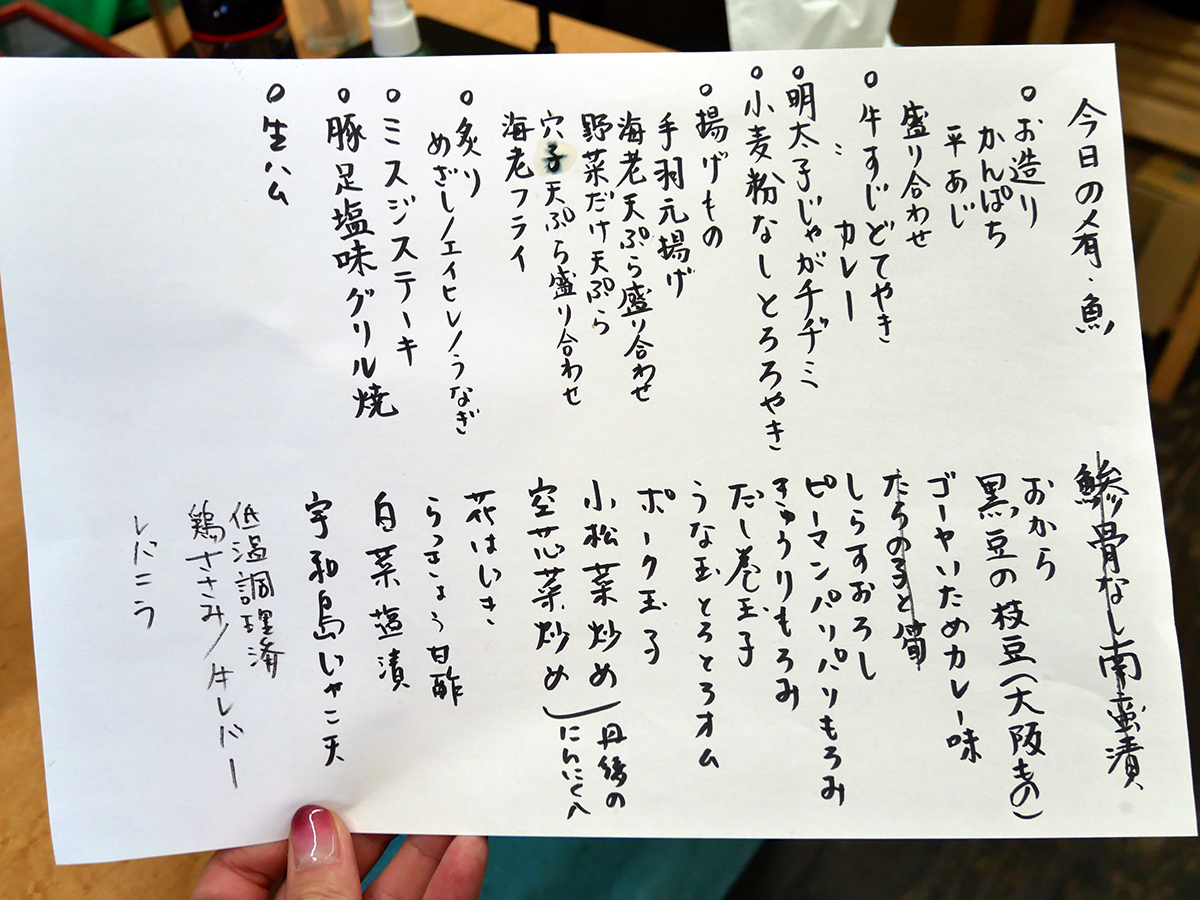 今日の肴・魚
○お造り
かんぱち
平あじ
盛り合わせ
○牛すじどてやき
〃カレー
○明太子じゃがチヂミ
○小麦粉なしとろろやき
○揚げもの
手羽元揚げ
海老天ぷら盛り合わせ
野菜だけ天ぷら
穴子天ぷら盛り合わせ
海老フライ
○炙り
めざし/エイヒレ/うなぎ
○ミスジステーキ
○豚足塩味グリル焼
○生ハム
鯵骨なし南蛮漬
おから
黒豆の枝豆(大阪もの)
ゴーヤいためカレー味
たらの子と筍
しらすおろし
ピーマンパリパリもろみ
きゅうりもろみ
だし巻玉子
うな玉とろとろオム
ポーク玉子
小松菜炒め
空芯菜炒め
丹後の
にんにく入
花はじき
らっきょう甘酢
白菜塩漬
宇和島じゃこ天
低温調理済
鶏ささみ/牛レバー
レバニラ